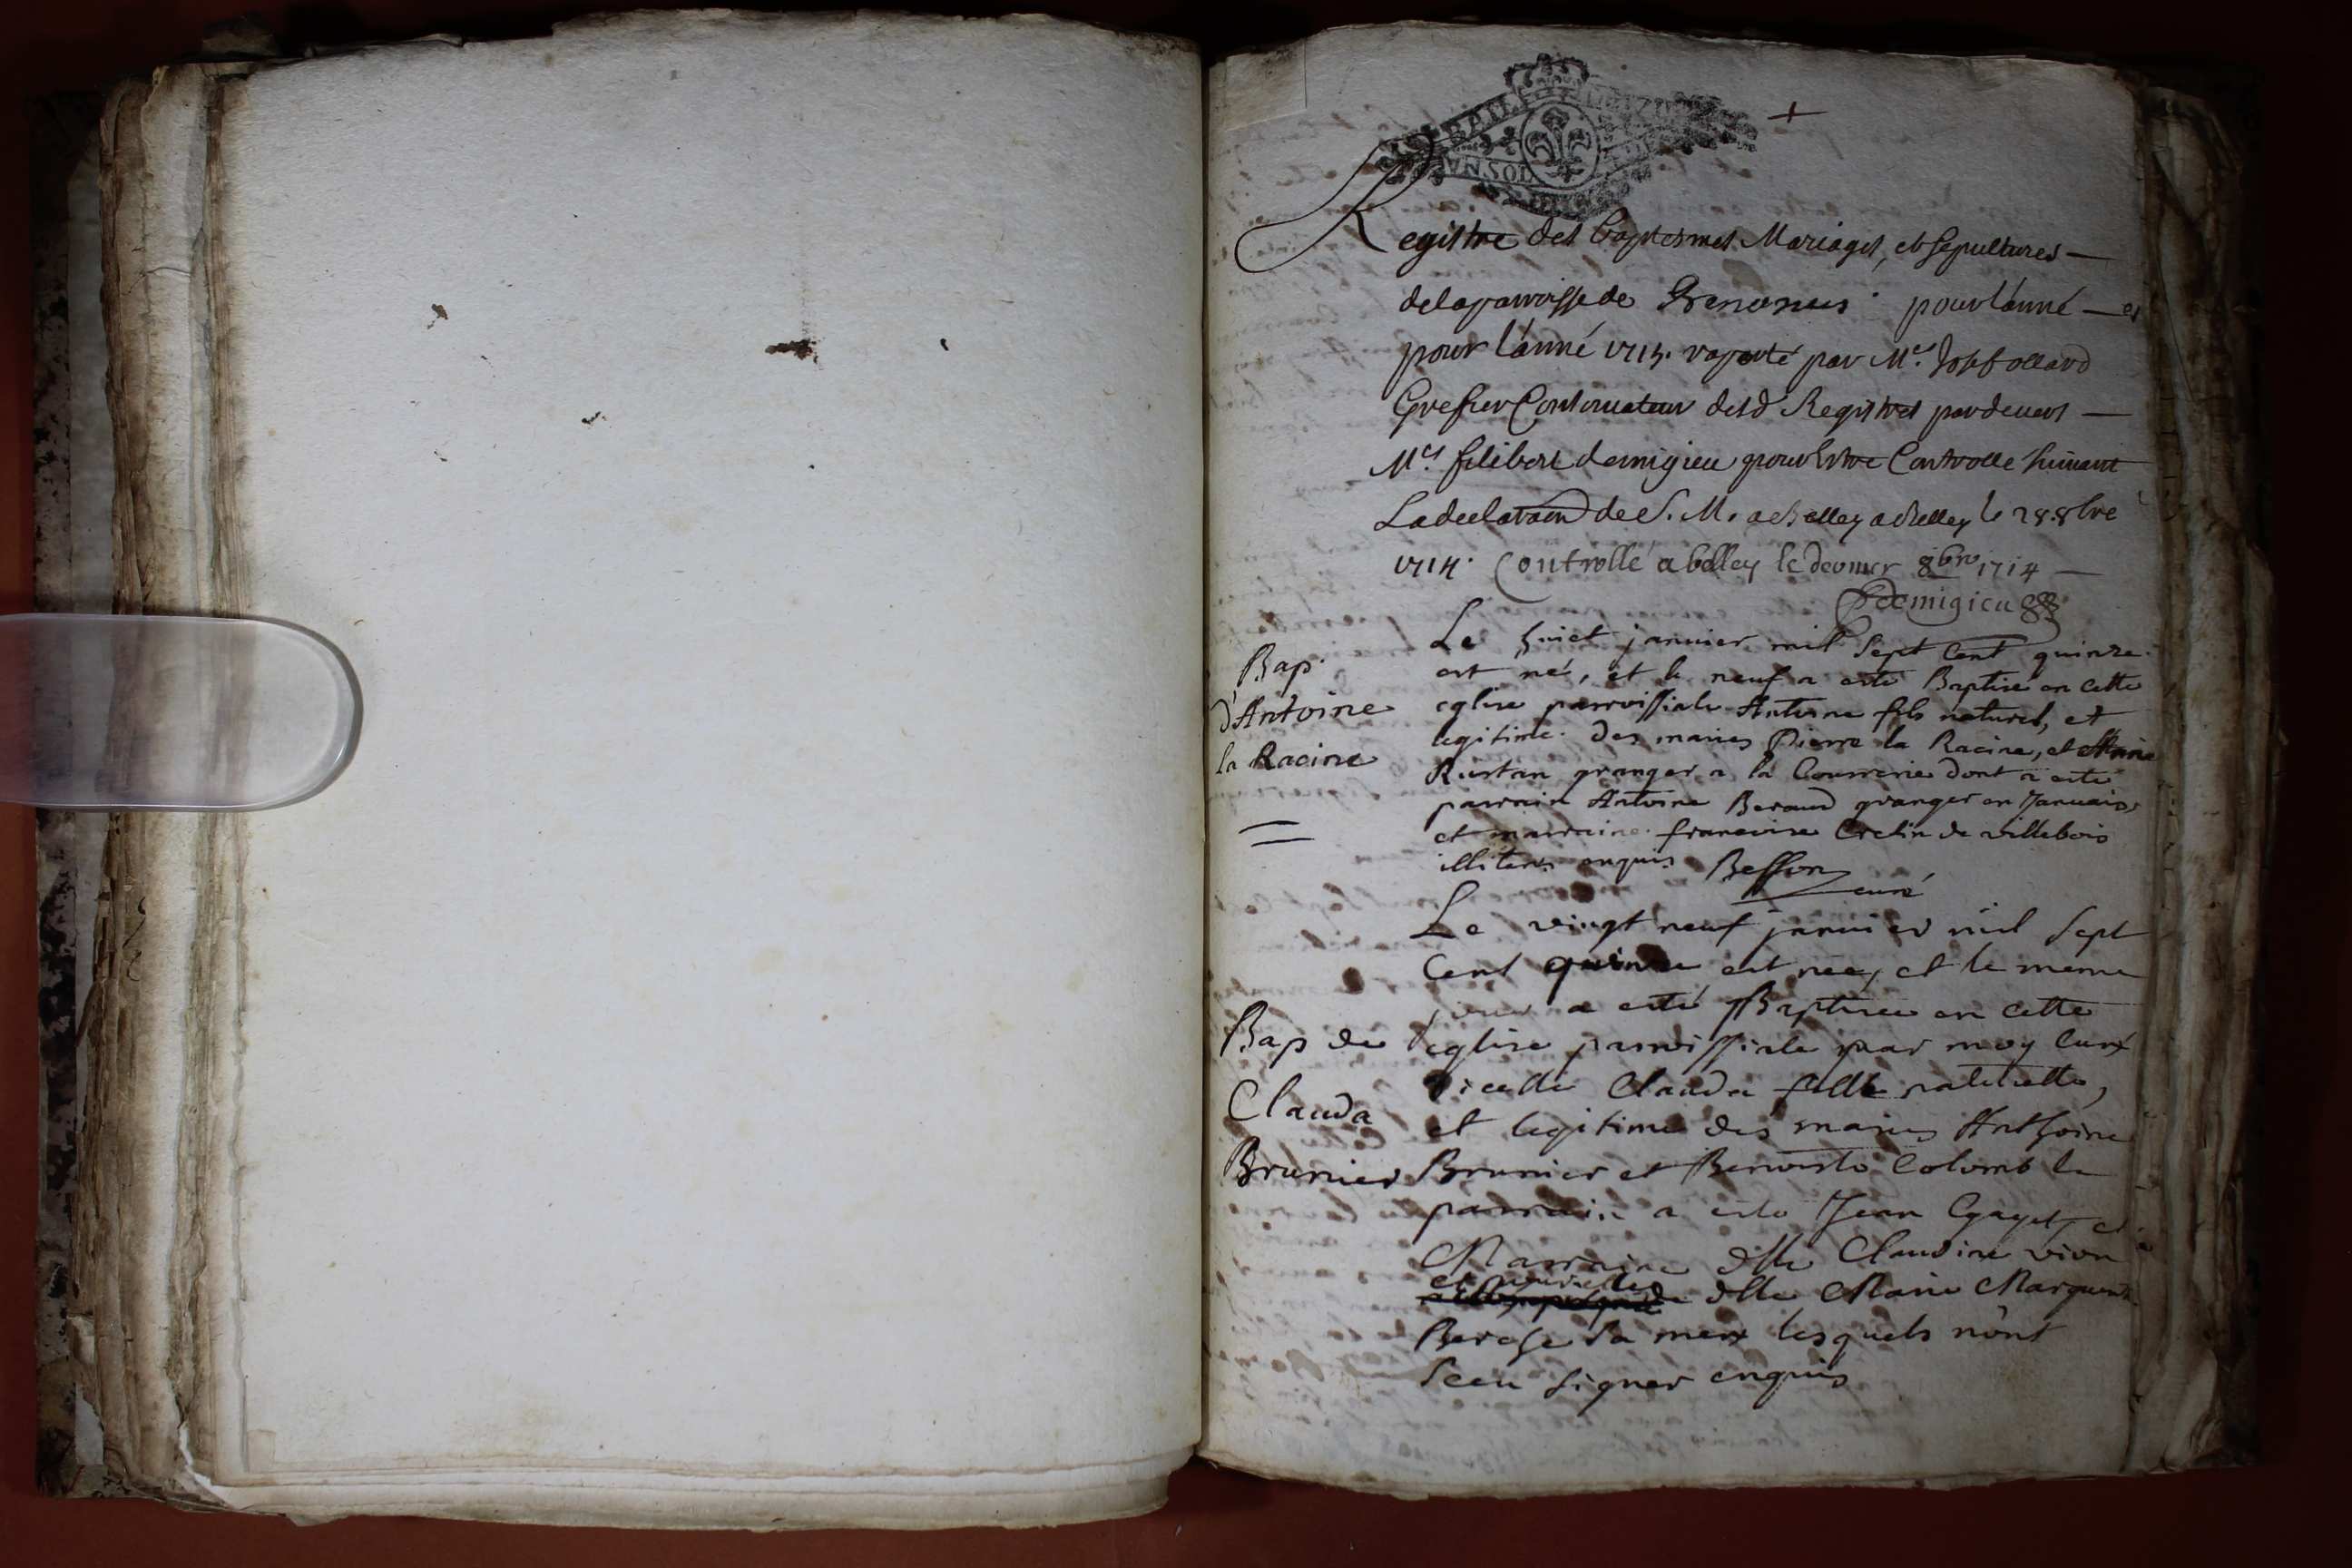 VN SOL
Registre des baptesmes Mariages, et sepultures
de la parroisse de pour l'anné
pour l'anné 1715. raporté par Me. Josef ollard
Grefier Conservateur desd Registres pardevant
Me. filibert demigieu pour Estre Controlle suivant
La declaraon de S. M. a belley a belley le 28. 8bre
1714. Controllé a belley le dernier 8bre 1714
demigieu
Bap.
d'Antoine
la Racine
Le huict janvier mil sept cent quinze
est né, et le neuf a esté Baptisé en cette
eglise parroissiale Antoine fils naturel, et
legitime des maries Pierre la Racine, et
Rustan granger a la Courrerie dont a esté
parrain Antoine Beraud granger en
et marraine francoise Cretin de villebois
illiteres enquis Besson
curé
Bap de
Clauda
Brunier
Le vingt neuf janvier mil sept
Cent quinze est née, et le meme
jour a esté Baptisee en cette
eglise parroissiale par moy Curé
d'icelle Clauda fille naturelle,
et legitime des maries Anthoine
Brunier et Benoiste Colomb le
parrain a esté Jean et
Marraine dlle Claudine vion
et pour elle dlle Marie Marguerite
sa mere lesquels n'ont
sceu signer enquis